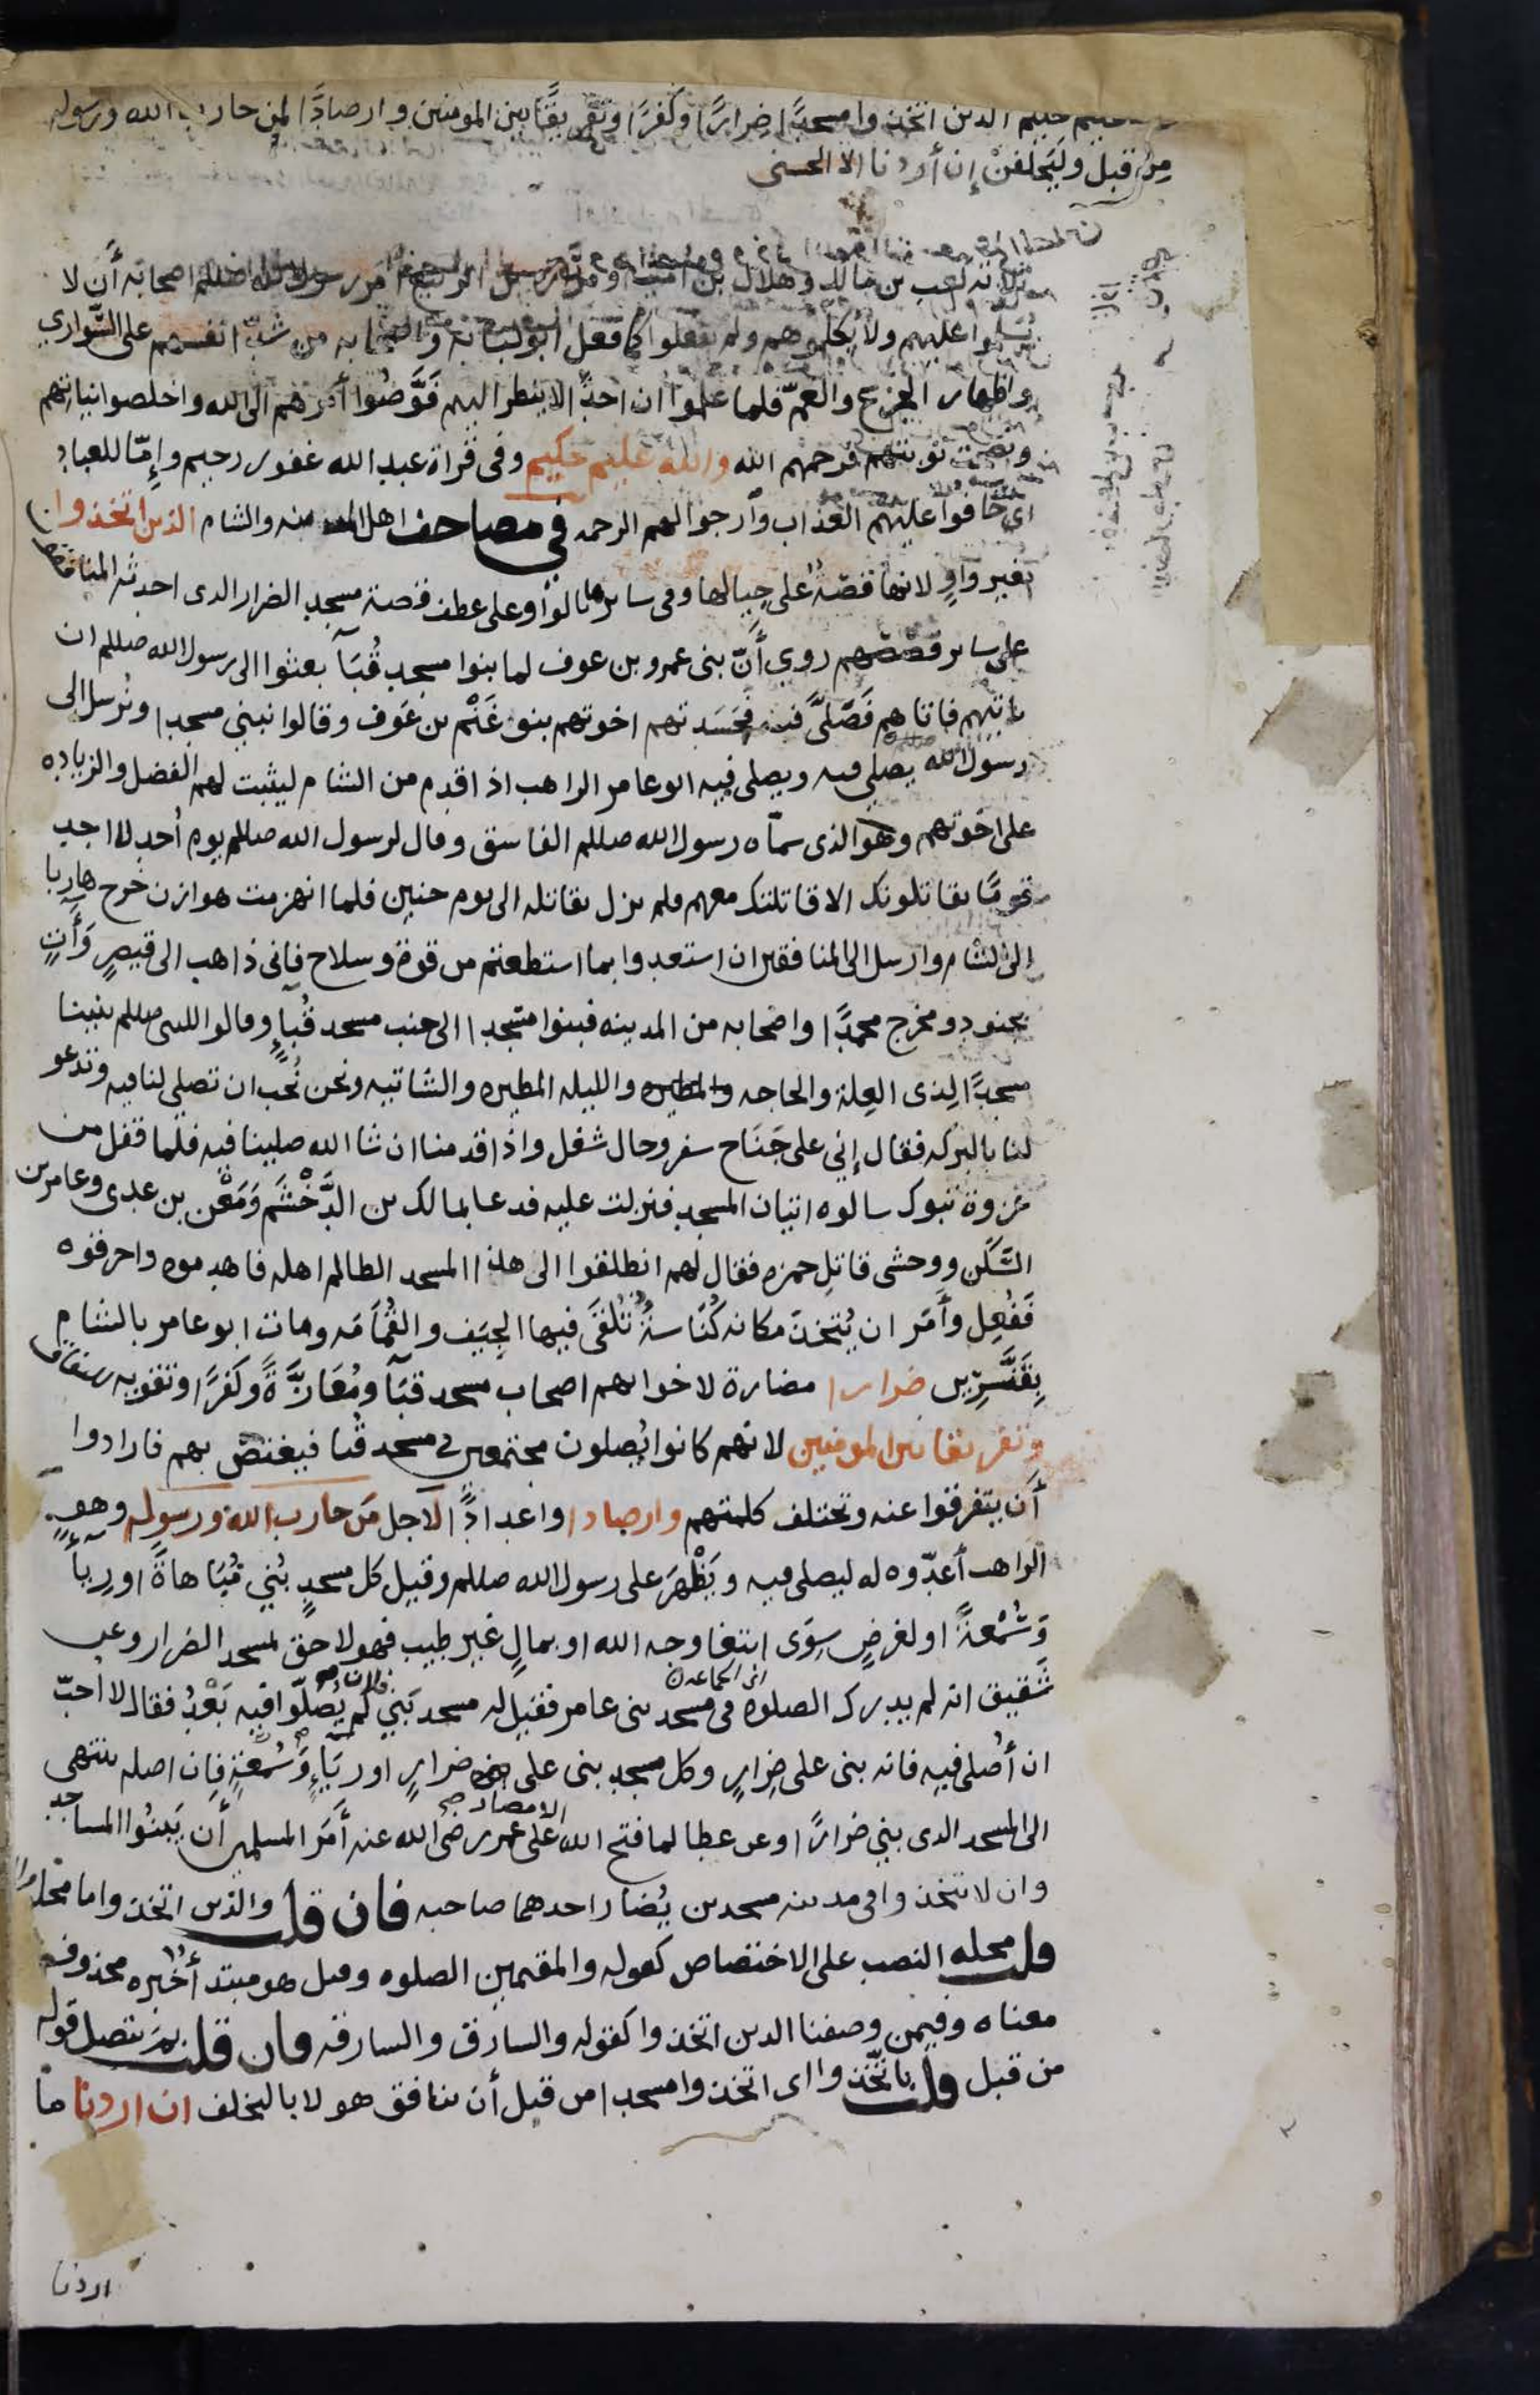 حكيم الذين اتخذوا مسجدًا ضرارًا وكفرًا وتفريقًا بين المومنين وارصادًا لمن حارب الله ورسوله
مِن قبل وليَحلفنّ إن أردنا الا الحسنى
ثلاثه كعب بن مالك وهلال بن اميه ومرارة بن الربيع امر رسول الله صللم اصحابه أن لا
يُسَلموا عليهم ولا يُكلموهم ولم يفعلوا كما فعل ابو لبابه واصحابه من شدّ انفسهم على السّواري
واظهار الجزع والغمّ فلما علموا ان احدًا لا ينظر اليهم فَوَّضُوا أمرهم الى الله واخلصوا نياتهم
ونصحت توبتهم فرحمهم الله والله عليم حكيم وفى قراة عبد الله غفور رحيم وإمّا للعباد
اى خافوا عليهم العذاب وأرجوا لهم الرحمه فى مصاحف اهل المدينه والشام الذين اتخذوا
بغير واوٍ لانها قصّةٌ على حِيالها وفى سائرها بالواو على عطف قصة مسجد الضرار الدى احدثه المنافقون
على سائر قصصهم روي أنّ بنى عمرو بن عوف لما بنوا مسجد قُبَآ بعثوا الى رسول الله صللم ان
ياتيهم فاتاهم فَصَلَّى فيه فحَسَدتهم اخوتهم بنو غَنْم بن عَوف وقالوا نبني مسجدا ونُرسل الى
رسول الله يصلى فيه ويصلى فيه ابو عامر الراهب اذا قدم من الشام ليثبت لهم الفضل والزياده
على اخوتهم وهو الذى سمّاه رسول الله صللم الفاسق وقال لرسول الله صللم يوم أُحد لا اجد
قومًا يقاتلونك الا قاتلتك معهم فلم يزل يقاتله الى يوم حنين فلما انهزمت هوازن خرج هاربا
الى الشام وارسل الى المنافقين ان استعدوا بما استطعتم من قوة وسلاح فانى ذاهب الى قيصرٍ وَأَتٍ
بجنود ومخرج محمدًا واصحابه من المدينه فبنوا مسجدا الى جنب مسجد قُباءٍ وقالوا للنبى صللم بنينا
مسجدًا لِذى العِلة والحاجه والليله المطيره والشاتيه ونحن نُحب ان تصلى لنا فيه وتدعو
لنا بالبركه فقال إني على جَنَاح سفر وحال شغل واذا قدمنا ان شا الله صلينا فيه فلما قفل من
غزوة تبوك سالوه اتيان المسجد فنزلت عليه فدعا بمالك بن الدَّخْشَم وَمَعْن بن عدى وعامر بن
السَّكَن ووحشى قاتِل حمزه فقال لهم انطلقوا الى هذا المسجد الظالم اهله فاهدموه واحرقوه
فَفُعِل وأَمَر ان يُتخذ مكانه كُنَاسةٌ تُلقَى فيها الجِيَف والقُمامَه ومات ابو عامر بالشام
بِقَنَّسِرِين ضرارا مضارة لاخوانهم اصحاب مسجد قبَآ ومُعَازَّةً وكفرًا وتقويه للنفاق
وتفريقا بين المومنين لانهم كانوا يُصلون مجتمعين فى مسجد قُبا فيغتصّ بهم فارادوا
أن يتفرقوا عنه وتختلف كلمتهم وارصادا واعدادًا لاجل مَن حارب الله ورسوله وهو
الراهب أعدّوه له ليصلى فيه ويَظْهرَ على رسول الله صللم وقيل كل مسجدٍ بُني مُبَاهاةً او رياً
وَسُمْعةً او لغرضٍ سِوَى ابتغا وجه الله او بمالٍ غير طيب فهو لاحق لمسجد الضرار وعن
شَقيق انه لم يدرك الصلوه فى مسجد بنى عامر فقيل له مسجد بَنى فلان لم يُصَلّوا فيه بَعْدُ فقال لا احبّ
ان أُصلى فيه فانه بنى على ضِرارٍ وكل مسجدٍ بنى على ضرارٍ او رِيَاءٍ وَسُمْعةٍ فان اصله ينتهى
الى المسجد الدى بني ضرارًا وعن عطا لما فتح الله الامصار على عمر رضى الله عنه أَمَر المسلمين أن يَبنُوا المساجد
وان لا يتخذوا فى مدينه مسجدين يُضارّ احدهما صاحبه فان قلت والذين اتخذوا ما محله
قلت محله النصب على الاختصاص كقوله والمقيمين الصلوه وقيل هو مبتدأ خبره محذوف
معناه وفيمن وصفنا الدين اتخذوا كقوله والسارق والسارقه فان قلت بم يتصل قوله
من قبل قلت باتّخذوا اى اتخذوا مسجدا من قبل أن ينافق هولا بالتخلف ان اردنا ما
اردنا